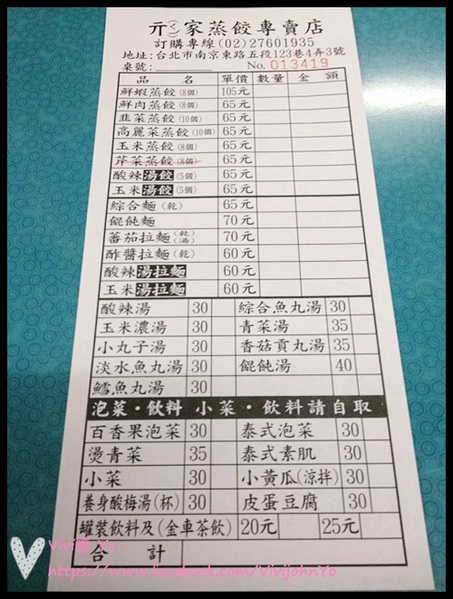 亓(ㄑㄧˊ)家蒸餃專賣店
訂購專線(02)27601935
地址:台北市南京東路五段123巷4弄3號
桌號: No. 013419
品 名 單價 數量 金 額
鮮蝦蒸餃(8個) 105元
鮮肉蒸餃(8個) 65元
韭菜蒸餃(10個) 65元
高麗菜蒸餃(10個) 65元
玉米蒸餃(8個) 65元
芹菜蒸餃(8個) 65元
酸辣湯餃(5個) 65元
玉米湯餃(5個) 65元
綜合麵(乾) 65元
餛飩麵 70元
蕃茄拉麵(乾)(湯) 70元
酢醬拉麵(乾) 60元
酸辣湯拉麵 60元
玉米湯拉麵 60元
酸辣湯 30 綜合魚丸湯 30
玉米濃湯 30 青菜湯 35
小丸子湯 30 香菇貢丸湯 35
淡水魚丸湯 30 餛飩湯 40
鱈魚丸湯 30
泡菜・飲料 小菜・飲料請自取
百香果泡菜 30 泰式泡菜 30
燙青菜 35 泰式素肌 30
小菜 30 小黃瓜(涼拌) 30
養身酸梅湯(杯) 30 皮蛋豆腐 30
罐裝飲料及(金車茶飲) 20元 25元
合 計
https://www.facebook.com/VivijohnYo